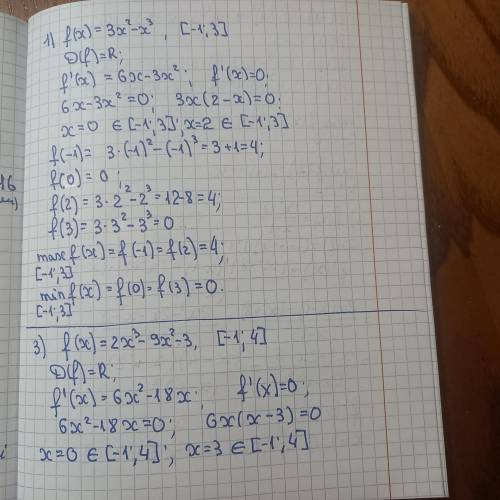 1) f(x) = 3x² - x³, [-1; 3]
D(f) = R;
f'(x) = 6x - 3x²; f'(x) = 0;
6x - 3x² = 0; 3x(2 - x) = 0;
x = 0 ∈ [-1; 3]; x = 2 ∈ [-1; 3]
f(-1) = 3·(-1)² - (-1)³ = 3 + 1 = 4;
f(0) = 0;
f(2) = 3·2² - 2³ = 12 - 8 = 4;
f(3) = 3·3² - 3³ = 0
max f(x) = f(-1) = f(2) = 4;
[-1; 3]
min f(x) = f(0) = f(3) = 0.
[-1; 3]
3) f(x) = 2x³ - 9x² - 3, [-1; 4]
D(f) = R;
f'(x) = 6x² - 18x; f'(x) = 0;
6x² - 18x = 0; 6x(x - 3) = 0
x = 0 ∈ [-1; 4]; x = 3 ∈ [-1; 4]
16